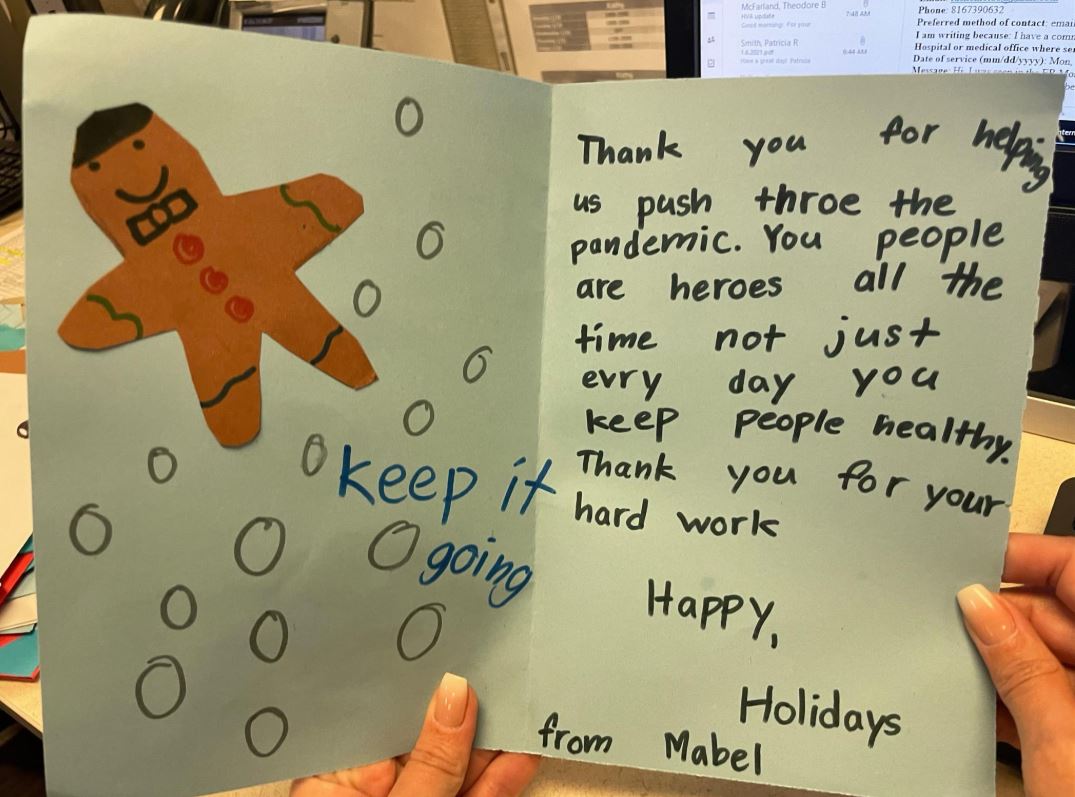 McFarland, Theodore B
HVA update
7:48 AM
Good morning! For your
Smith, Patricia R
1.6.2021.pdf
6:44 AM
Have a great day! Patricia
Phone: 8167390632
Preferred method of contact: emai
I am writing because: I have a com
Hospital or medical office where se
Date of service (mm/dd/yyyy): Mon,
Thank you for helping
us push throe the
pandemic. You people
are heroes all the
time not just
evry day you
keep people healthy.
Thank you for your
hard work
Happy,
Holidays
from Mabel
keep it
going